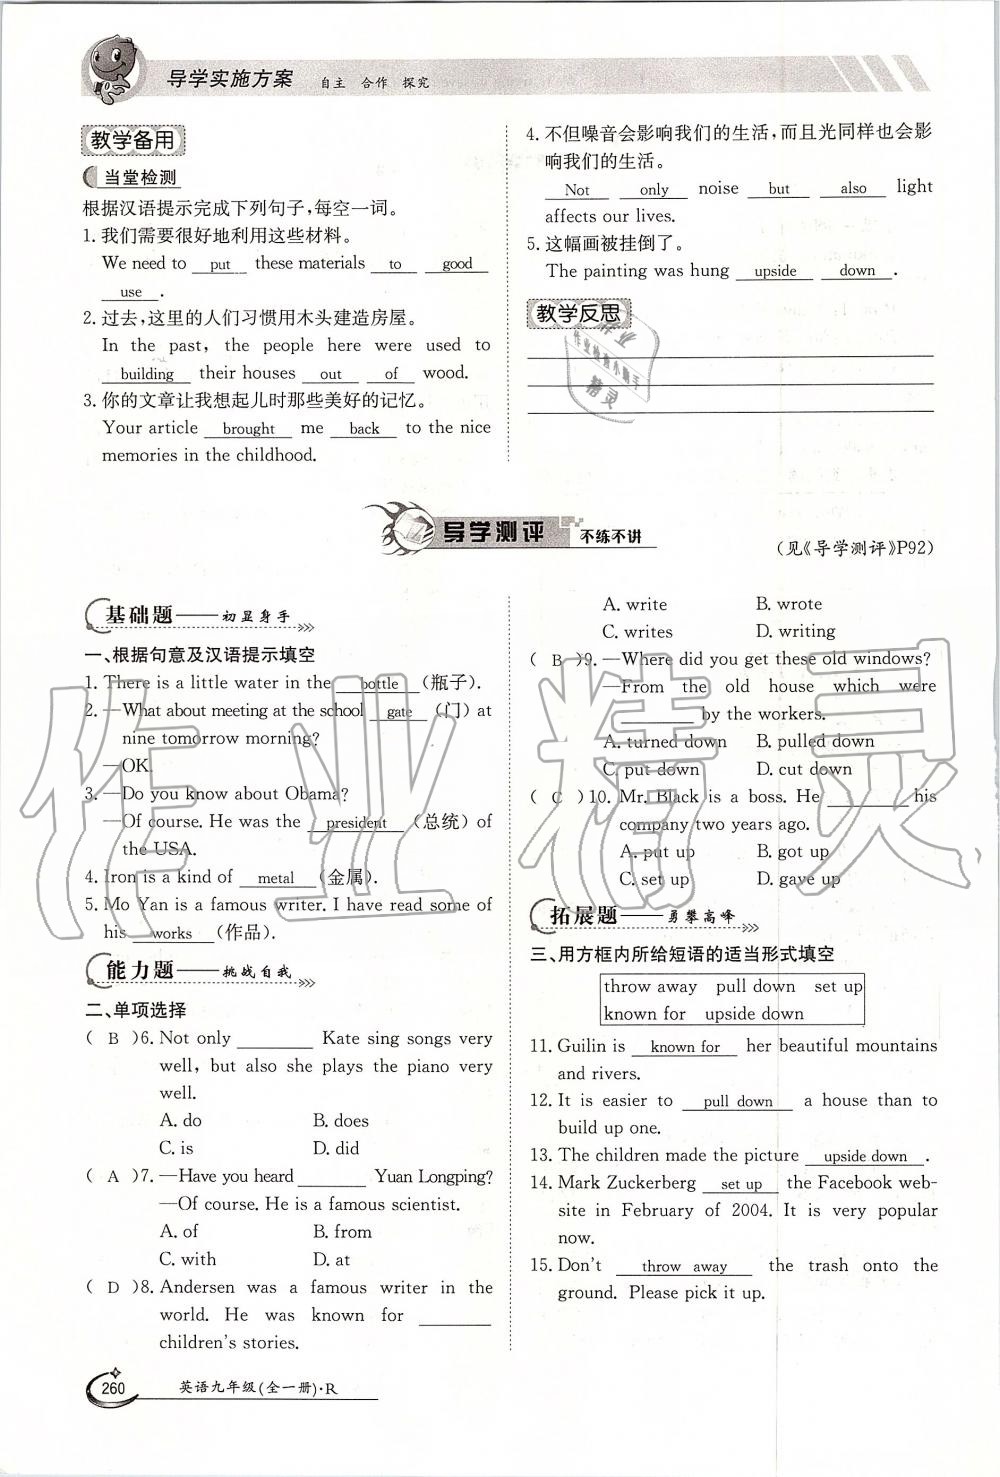 导学实施方案 自主 合作 探究
教学备用
当堂检测
根据汉语提示完成下列句子,每空一词。
1. 我们需要很好地利用这些材料。
We need to put these materials to good
use .
2. 过去,这里的人们习惯用木头建造房屋。
In the past, the people here were used to
building their houses out of wood.
3. 你的文章让我想起儿时那些美好的记忆。
Your article brought me back to the nice
memories in the childhood.
4. 不但噪音会影响我们的生活,而且光同样也会影
响我们的生活。
Not only noise but also light
affects our lives.
5. 这幅画被挂倒了。
The painting was hung upside down .
教学反思
导学测评 不练不讲
(见《导学测评》P92)
基础题——初显身手
一、根据句意及汉语提示填空
1. There is a little water in the bottle (瓶子).
2. —What about meeting at the school gate (门) at
nine tomorrow morning?
—OK.
3. —Do you know about Obama?
—Of course. He was the president (总统) of
the USA.
4. Iron is a kind of metal (金属).
5. Mo Yan is a famous writer. I have read some of
his works (作品).
能力题——挑战自我
二、单项选择
( B )6. Not only ________ Kate sing songs very
well, but also she plays the piano very
well.
A. do B. does
C. is D. did
( A )7. —Have you heard ________ Yuan Longping?
—Of course. He is a famous scientist.
A. of B. from
C. with D. at
( D )8. Andersen was a famous writer in the
world. He was known for ________
children's stories.
A. write B. wrote
C. writes D. writing
( B )9. —Where did you get these old windows?
—From the old house which were
________ by the workers.
A. turned down B. pulled down
C. put down D. cut down
( C )10. Mr. Black is a boss. He ________ his
company two years ago.
A. put up B. got up
C. set up D. gave up
拓展题——勇攀高峰
三、用方框内所给短语的适当形式填空
throw away pull down set up
known for upside down
11. Guilin is known for her beautiful mountains
and rivers.
12. It is easier to pull down a house than to
build up one.
13. The children made the picture upside down .
14. Mark Zuckerberg set up the Facebook web-
site in February of 2004. It is very popular
now.
15. Don't throw away the trash onto the
ground. Please pick it up.
260 英语九年级(全一册)·R
作业精灵
作业
作业检查小助手
精灵